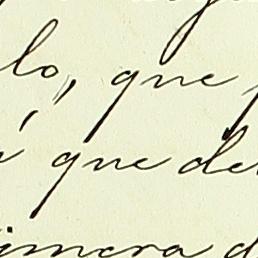 lo, que
que de
imera d